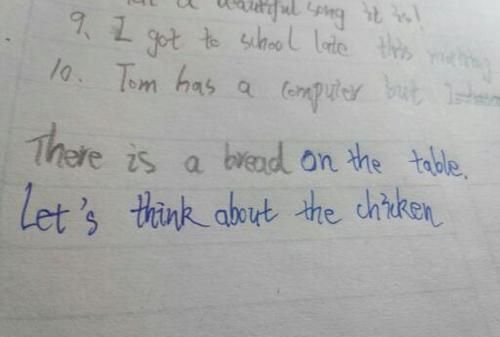 a beautiful song it is!
9. I got to school late this morning
10. Tom has a computer but I
There is a bread on the table.
Let's think about the chicken